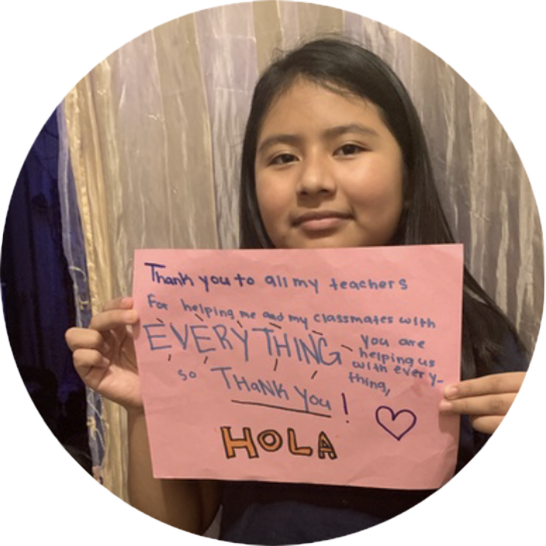 Thank you to all my teachers
For helping me and my classmates with
EVERYTHING - you are
helping us
with every-
thing,
so THANK You!
HOLA